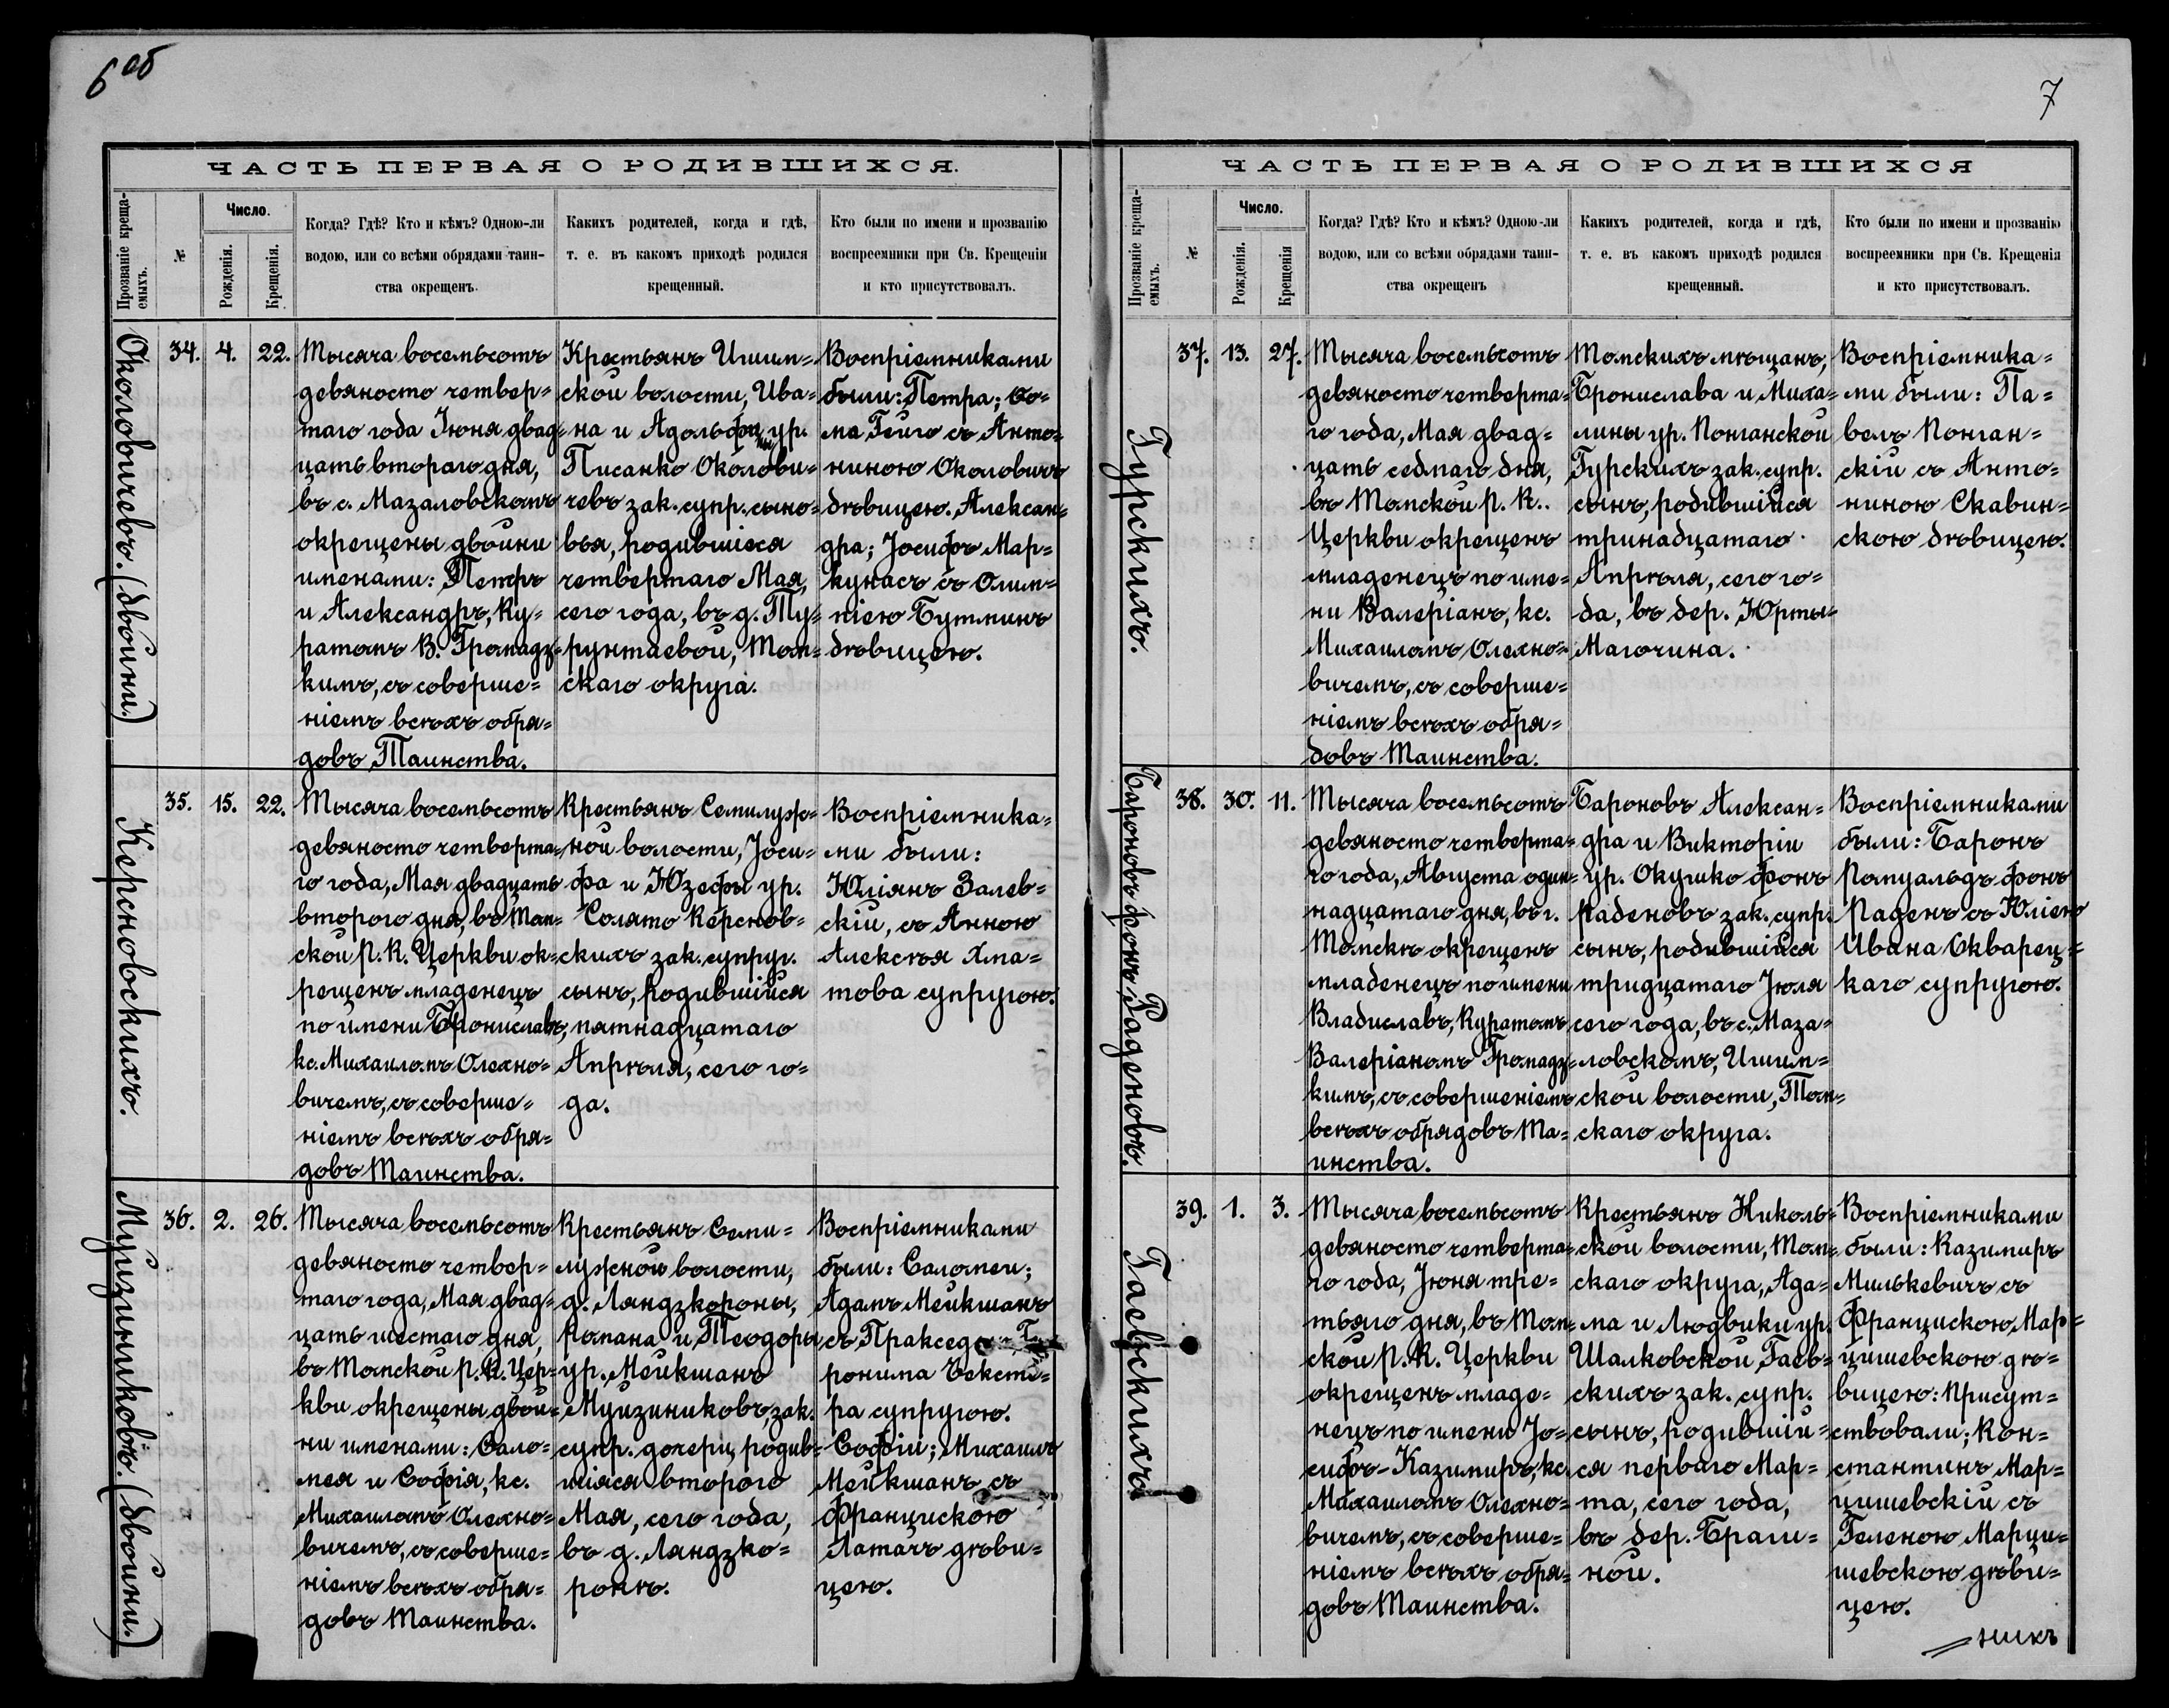 6 об
ЧАСТЬ ПЕРВАЯ О РОДИВШИХСЯ.
Прозваніе креща-
емыхъ.
№
Число.
Рожденія.
Крещенія.
Когда? Гдѣ? Кто и кѣмъ? Одною-ли
водою, или со всѣми обрядами таин-
ства окрещенъ.
Какихъ родителей, когда и гдѣ,
т. е. въ какомъ приходѣ родился
крещенный.
Кто были по имени и прозванію
воспреемники при Св. Крещеніи
и кто присутствовалъ.
Околовичевъ. (двойни.)
34.
4.
22.
Тысяча восемьсотъ
девяносто четвер=
таго года Іюня двад=
цать втораго дня,
въ с. Мазаловскомъ
окрещены двойни
именами: Петръ
и Александръ, Ку=
ратомъ В. Громадз=
кимъ, съ соверше=
ніемъ всѣхъ обря=
довъ Таинства.
Крестьянъ Ишим=
ской волости, Ива=
на и Адольфины ур.
Писанко Околови=
чевъ зак. супр. сыно=
вья, родившіеся
четвертаго Мая,
сего года, въ д. Ту=
рунтаевой, Том=
скаго округа.
Воспріемниками
были: Петра; Ѳо=
ма Гейго съ Анто=
ниною Околовичъ
дѣвицею. Алексан=
дра; Іосифъ Мар=
кунасъ съ Олим=
піею Бутминъ
дѣвицею.
Керсновскихъ.
35.
15.
22.
Тысяча восемьсотъ
девяносто четверта=
го года, Мая двадцать
втораго дня, въ Том=
ской Р. К. Церкви ок=
рещенъ младенецъ
по имени Брониславъ,
кс. Михаиломъ Олехно=
вичемъ, съ соверше=
ніемъ всѣхъ обря=
довъ Таинства.
Крестьянъ Семилуж=
ной волости, Іоси=
фа и Юзефы ур.
Солято Керснов=
скихъ зак. супруг.
сынъ, родившійся
пятнадцатаго
Апрѣля, сего го=
да.
Воспріемника=
ми были:
Юліянъ Залев=
скій, съ Анною
Алексѣя Хма=
това супругою.
Муйзиниковъ. (двойни.)
36.
2.
26.
Тысяча восемьсотъ
девяносто четвер=
таго года, Мая двад=
цать шестаго дня,
въ Томской Р. К. Цер=
кви окрещены двой=
ни именами: Сало=
мея и Софія, кс.
Михаиломъ Олехно=
вичемъ, съ соверше=
ніемъ всѣхъ обря=
довъ Таинства.
Крестьянъ Семи=
лужной волости,
д. Ляндзкороны,
Романа и Теодоры
ур. Мейкшанъ
Муйзиниковъ, зак.
супр. дочери, родив=
шіяся втораго
Мая, сего года,
въ д. Ляндзко=
ронѣ.
Воспріемниками
были: Саломеи;
Адамъ Мейкшанъ
съ Пракседою
ронима Чексте=
ра супругою.
Софіи; Михаилъ
Мейкшанъ съ
Францискою
Латачъ дѣви=
цею.
7
ЧАСТЬ ПЕРВАЯ О РОДИВШИХСЯ
Прозваніе креща-
емыхъ.
№
Число.
Рожденія.
Крещенія
Когда? Гдѣ? Кто и кѣмъ? Одною-ли
водою, или со всѣми обрядами таин-
ства окрещенъ
Какихъ родителей, когда и гдѣ,
т. е. въ какомъ приходѣ родился
крещенный.
Кто были по имени и прозванію
воспреемники при Св. Крещенія
и кто присутствовалъ.
Гурскихъ.
37.
13.
27.
Тысяча восемьсотъ
девяносто четверта=
го года, Мая двад=
цать седмаго дня,
въ Томской Р. К.
Церкви окрещенъ
младенецъ по име=
ни Валеріанъ, кс.
Михаиломъ Олехно=
вичемъ, съ соверше=
ніемъ всѣхъ обря=
довъ Таинства.
Томскихъ мѣщанъ,
Бронислава и Миха=
лины ур. Понганской
Гурскихъ зак. супр.
сынъ, родившійся
тринадцатаго
Апрѣля, сего го=
да, въ дер. Юрты=
Магочина.
Воспріемника=
ми были: Па=
велъ Понган=
скій съ Анто=
ниною Скавин=
скою дѣвицею.
Бароновъ фонъ Раденовъ.
38.
30.
11.
Тысяча восемьсотъ
девяносто четверта=
го года, Августа один=
надцатаго дня, въ г.
Томскѣ окрещенъ
младенецъ по имени
Владиславъ, Куратомъ
Валеріаномъ Громадз=
кимъ, съ совершеніемъ
всѣхъ обрядовъ Та=
инства.
Бароновъ Алексан=
дра и Викторіи
ур. Окушко фонъ
Раденовъ зак. супр.
сынъ, родившійся
тридцатаго Іюля
сего года, въ с. Маза=
ловскомъ, Ишим=
ской волости, Том=
скаго округа.
Воспріемниками
были: Баронъ
Ромуальдъ фонъ
Раденъ съ Юліею
Ивана Скварец=
каго супругою.
Гаевскихъ
39.
1.
3.
Тысяча восемьсотъ
девяносто четверта=
го года, Іюня тре=
тьяго дня, въ Том=
ской Р. К. Церкви
окрещенъ младе=
нецъ по имени Іо=
сифъ-Казимиръ, кс.
Михаиломъ Олехно=
вичемъ, съ соверше=
ніемъ всѣхъ обря=
довъ Таинства.
Крестьянъ Николь=
ской волости, Том=
скаго округа, Ада=
ма и Людвики ур.
Шалковской Гаев=
скихъ зак. супр.
сынъ, родившій=
ся перваго Мар=
та, сего года,
въ дер. Браги=
ной.
Воспріемниками
были: Казимиръ
Милькевичъ съ
Францискою Мар=
цишевскою дѣ=
вицею: Присут=
ствовали; Кон=
стантинъ Мар=
цишевскій съ
Геленою Марци=
шевскою дѣви=
цею.
никъ